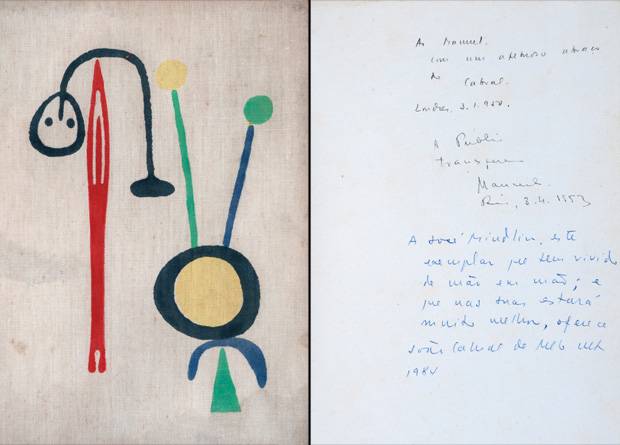 Ao Manuel,
com um afetuoso abraço
do Cabral.
Londres, 3.1.952.
A Publio
transfere
Manuel.
Rio, 3.4.1953
A José Mindlin, este
exemplar que tem vivido
de mão em mão; e
que nas suas estará
muito melhor, oferece
João Cabral de Melo Neto
1984